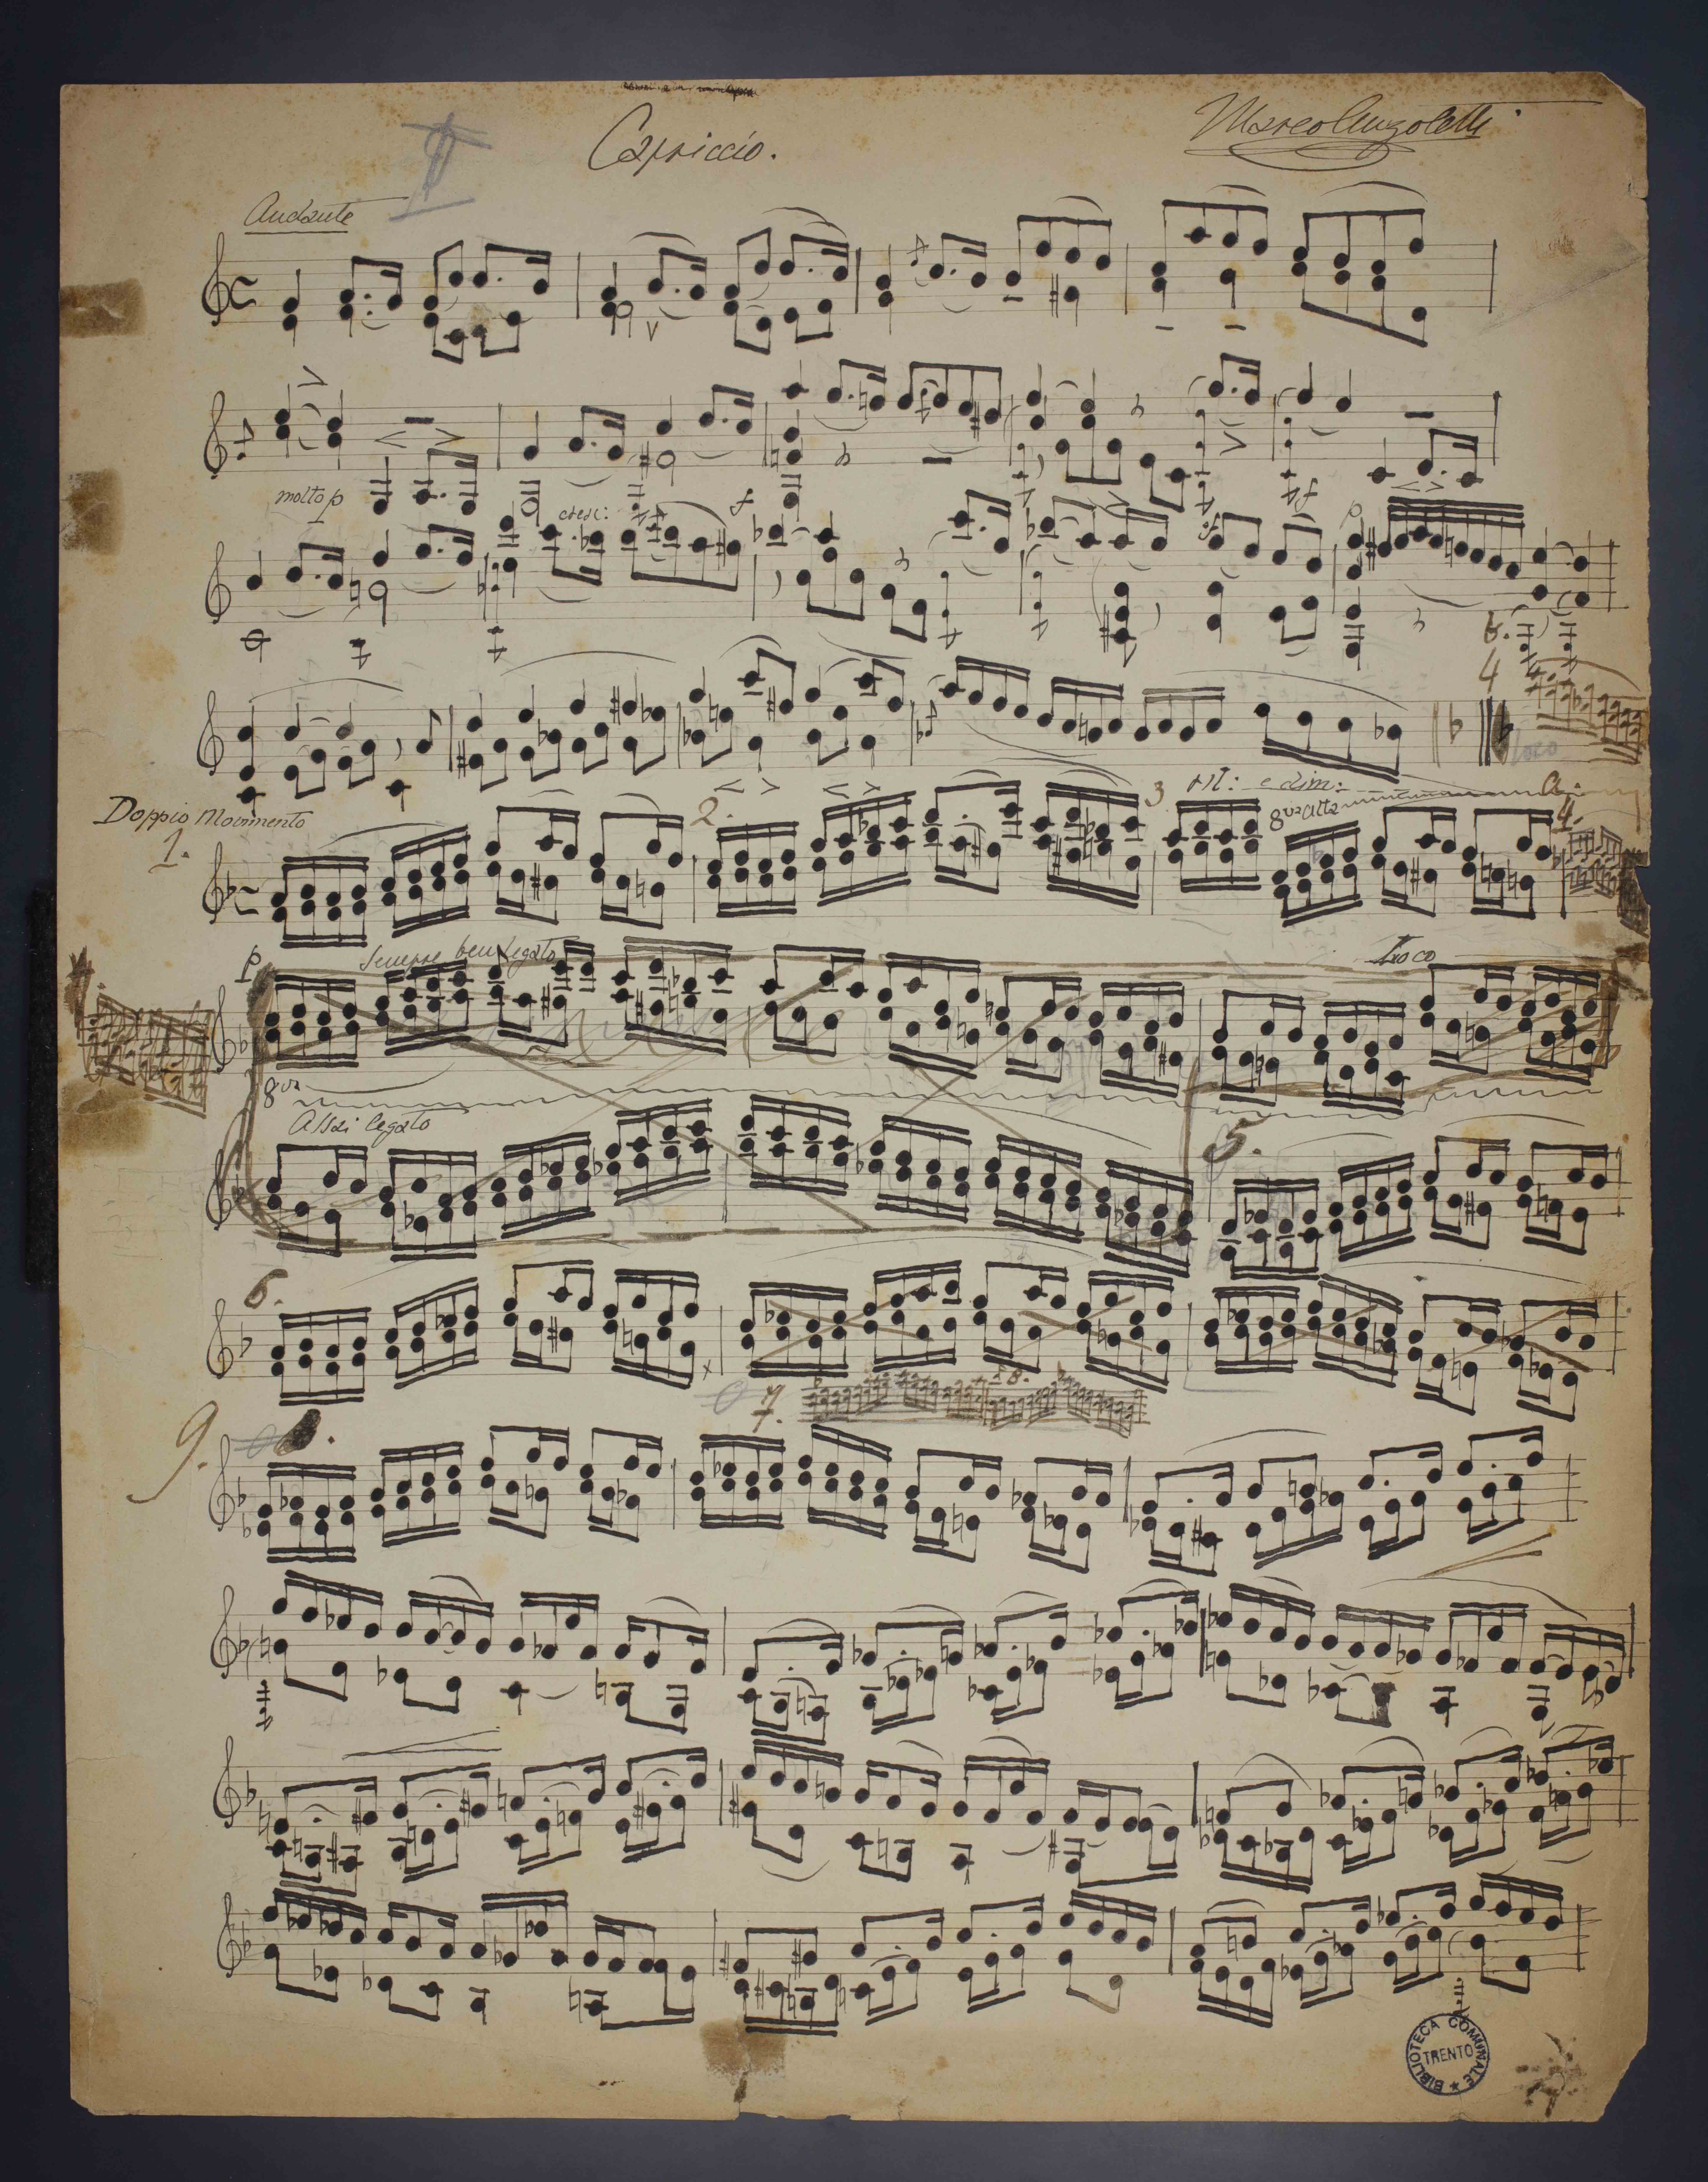 Capriccio.
Marco Anzoletti
II
Andante
molto p
cresc:
f
f
p
4
loco
rit: e dim:
Doppio Movimento
1.
2.
3
8va alta
4.
p
Sempre ben legato
Loco
4.
8va
Assai legato
5.
6.
7.
8.
9.
BIBLIOTECA COMUNALE
TRENTO